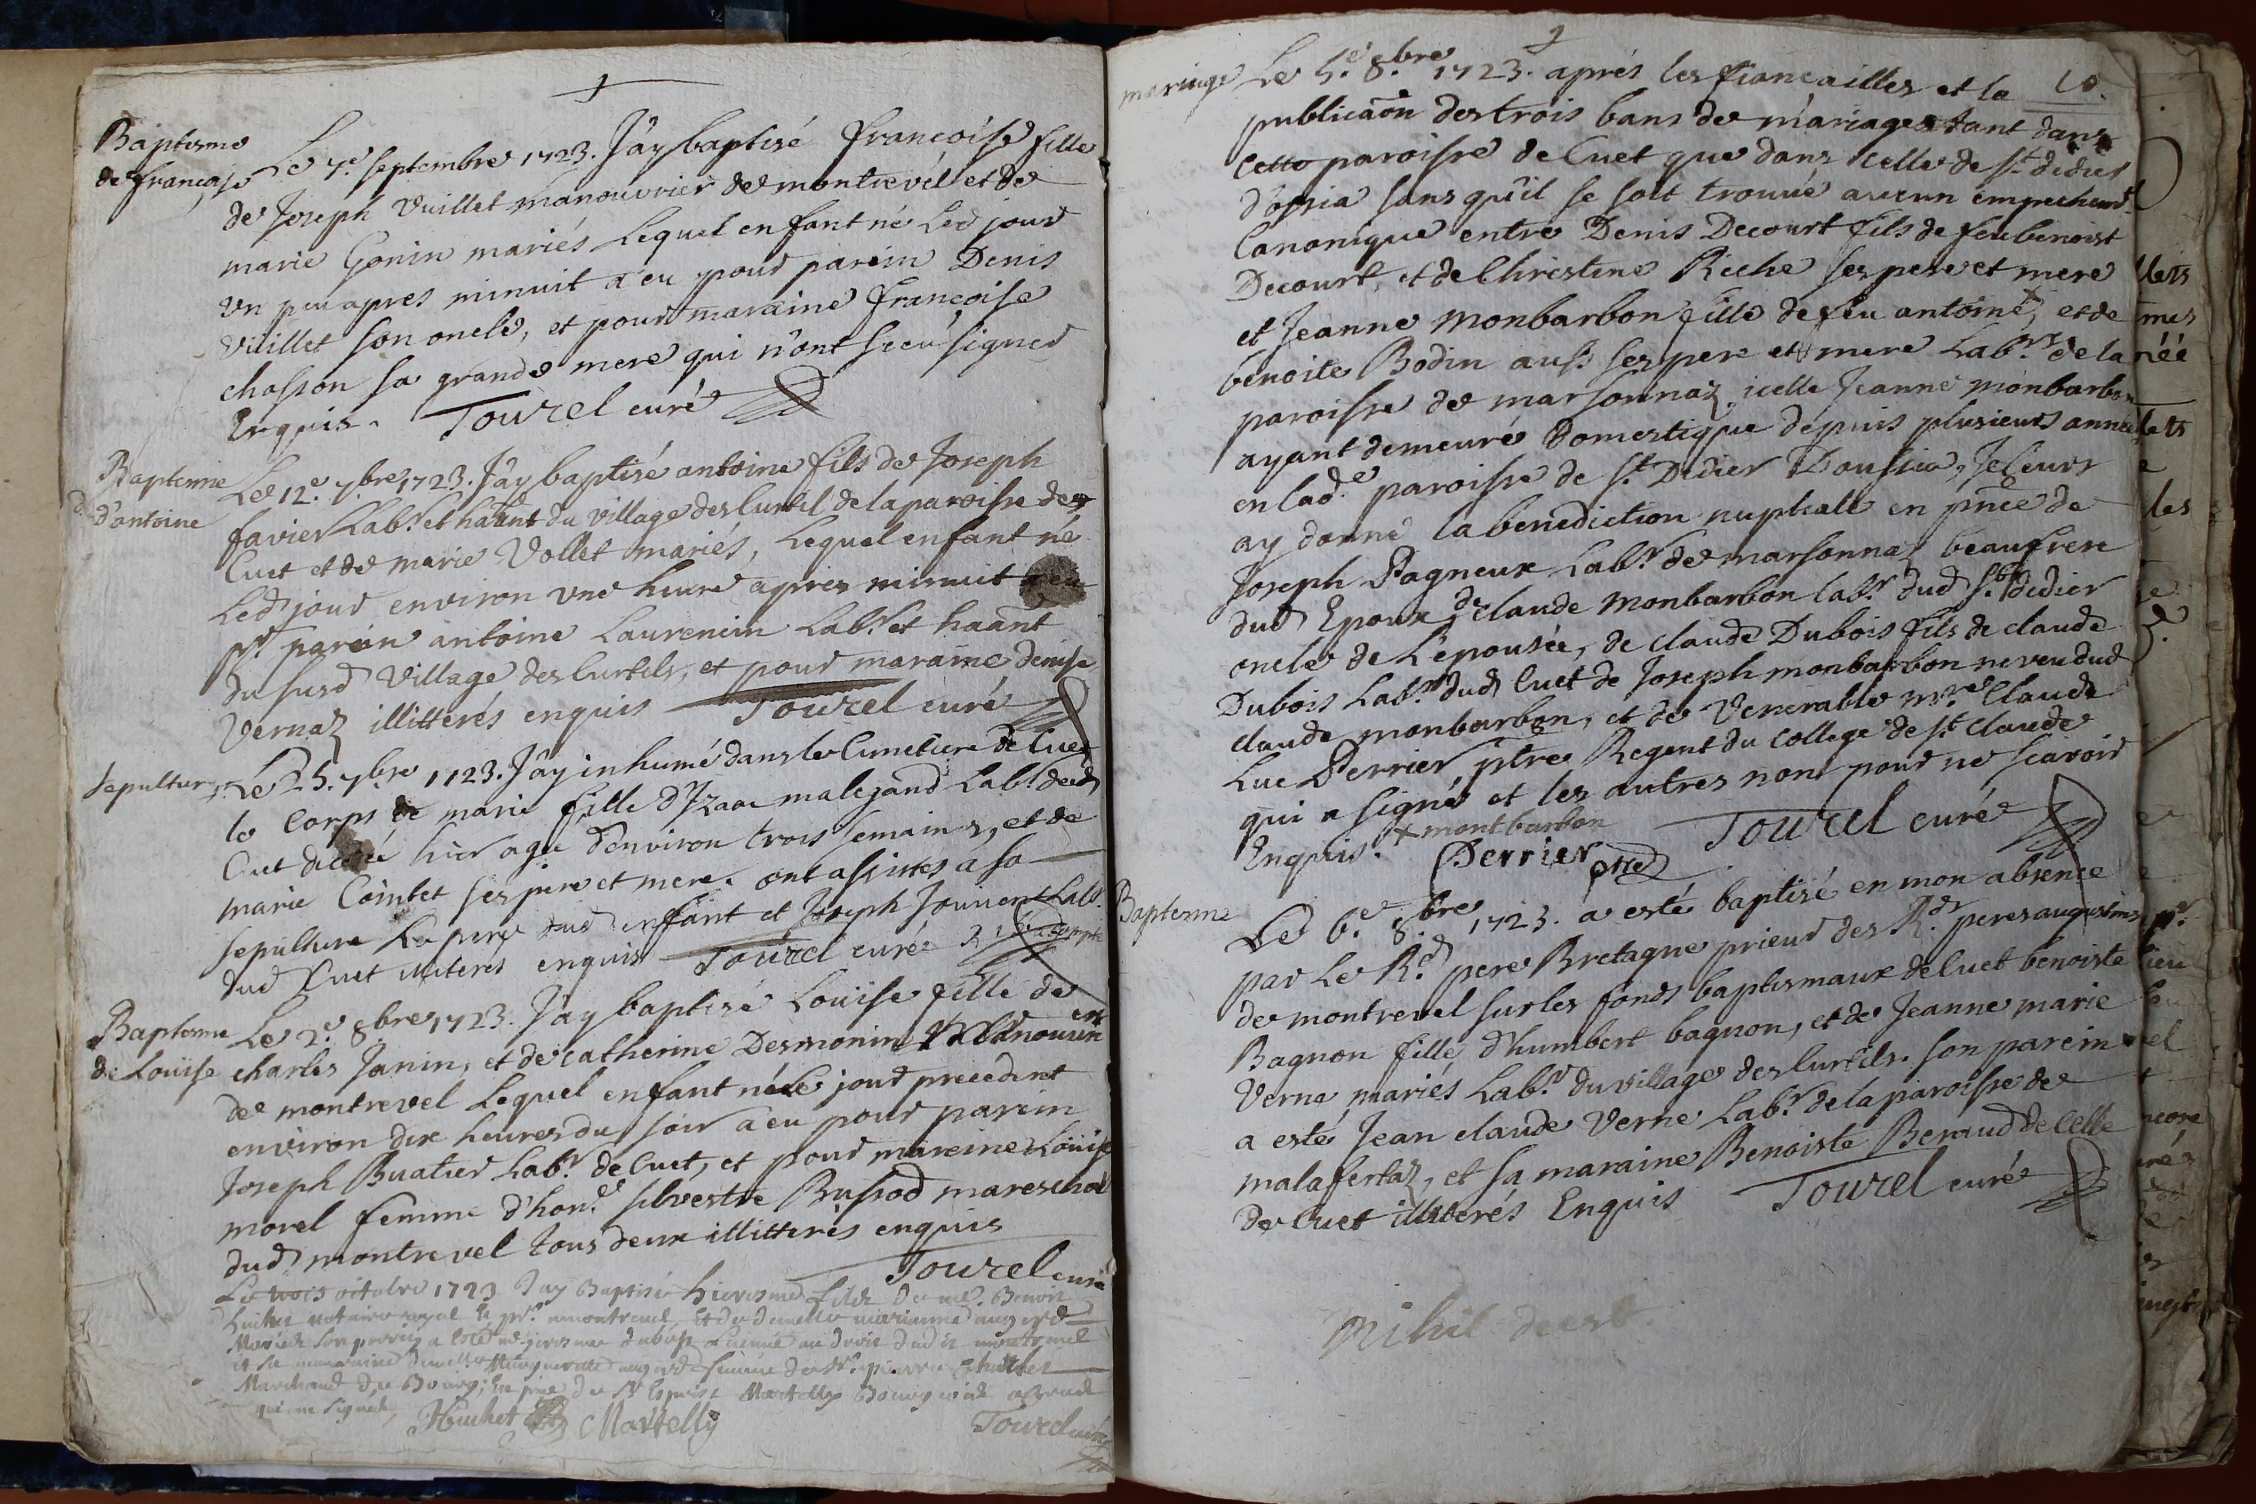 Baptesme
de françoise
Le 7.e septembre 1723. J'ay baptisé françoise fille
de Joseph Vuillet manouvrier de montrevel et de
marie Gonin mariés Lequel enfant né Led jour
un peu apres minuit a eu pour parein Denis
Vuillet son oncle, et pour maraine françoise
chasson sa grande mere qui n'ont sceu signer
Enquis. Tourel curé
Baptesme
d'antoine
Le 12.e 7.bre 1723. J'ay baptisé antoine fils de Joseph
favier Lab.r et haānt du village des Curtil de la paroisse de
Cuet et de marie Vollet mariés, Lequel enfant né
Led jour environ une heure apres minuit a eu
p.r parein antoine Laurencin Lab.r et haānt
du susd village des Curtils, et pour maraine denise
Vernaz illitterés enquis Tourel curé
Sepulture
Le 25. 7.bre 1723. J'ay inhumé dans le Cimetiere de Cuet
le Corps de marie fille d'Izaac malejand Lab.r dud
Cuet decedé hier agé d'environ trois semaines, et de
marie Cointet ses pere et mere. ont assistes a sa
sepulture Le pere dud enfant et Joseph Jouvent Lab.r
dud Cuet illiterés enquis Tourel curé
Baptesme
de Louise
Le 2.e 8.bre 1723. J'ay baptisé Louise fille de
charles Janin, et de catherine Desmonin manouvriers
de montrevel Lequel enfant né Le jour precedent
environ dix heures du soir a eu pour parein
Joseph Buatier Lab.r de Cuet, et pour mareine Louise
morel femme d'hon.e silvestre Bussod mareschal
dud montrevel tous deux illitterés enquis
Tourel curé
Le trois octobre 1723 J'ay Baptisé hierosme fils de me. Benoit
huchet notaire royal et p.r a montrevel, et de demelle marianne
Mariés son parein a esté
et sa maraine demelle Marguerite femme de Sr. pierre huchet
Marchand de Bourg, En p̄nce de Sr Esprit Martelly Bourgeois
qui ont signé,
Huchet Martelly Tourel curé
10.
mariage
Le 5.e 8.bre 1723. aprés les fiancailles et la
publicāon des trois bans de mariage tant dans
Cette paroisse de Cuet que dans celle de s.t didier
d'ossia sans qu'il se soit trouué aucun empechem.t
Canonique entre Denis Decourt fils de feu benoist
Decourt, et de Christine Riche ses pere et mere
et Jeanne Monbarbon fille de feu antoine x, et de
benoite Bodin auss. ses pere et mere Lab.rs de la
paroisse de marsonnaz, icelle Jeanne monbarbon
ayant demeuré Domestique depuis plusieurs années
en lad.e paroisse de s.t Didier Doussia, Je leurs
ay donné la benediction nuptiale en p̄nce de
Joseph Pagneux Lab.r de marsonnaz beaufrere
dud Epoux de claude monbarbon lab.r dud s.t didier
oncle de L'epousée, de claude Dubois fils de claude
Dubois Lab.r dud Cuet de Joseph monbarbon neveu dud
claude monbarbon, et de Venerable m.re Claude
Luc Perrier ptre Regent du college de s.t claude
qui a signé et les autres non pour ne scavoir
Enquis. x montbarbon
Perrier ptre Tourel curé
Baptesme
Le 6.e 8.bre 1723. a esté baptisé en mon absence
par le R.d pere Bretagne prieur des R.ds peres augustins
de montrevel sur les fonds baptismaux de Cuet benoiste
Bagnon fille d'humbert bagnon, et de Jeanne marie
Verne mariés Lab.rs du village des Curtils. son parein
a esté Jean claude Verne Lab.r de la paroisse de
malafertaz, et sa maraine Benoiste Beraud de Celle
de Cuet illiterés Enquis Tourel curé
Nihil deest